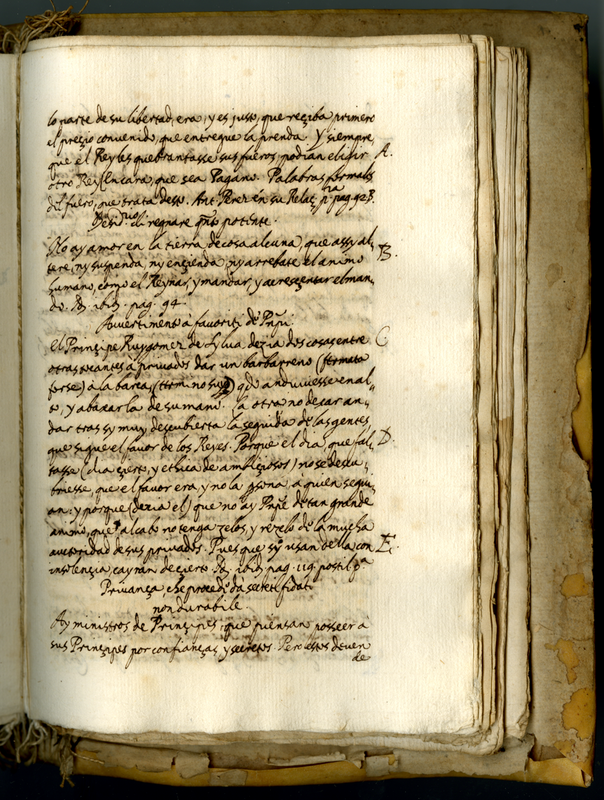 lo parte de su libertad, era, y es justo, que reciba primero
el preçio convenido, que entregue la prenda. Y siempre,
que el Rey les quebrantasse sus fueros, podian elegir
A.
otro Rey (encara, que sea Pagano. Palabras formales
del fuero, que trata desto. Ant. Perez en su Relaz. pag. 92.
di regnare potente.
No ay amor en la tierra de cosa alcuna, que assy al„
B.
tere, ny suspenda, ny encienda, ny arrebate el animo
humano, como el Reynar, y mandar, y el man„
do. ibid. pag. 94.
Avvertimento à favoriti de Prñpi.
El Prinçipe Ruygomez de Sylva dezia dos cosas entre
C
otras tocantes a privados dar un barbarreno (fermata
forse) à la barca, (termino suyo) qdo anduviesse en al„
to, y abaxarla de su mano. La otra no dexar an„
dar tras sy muy descubierta la seguida de las gentes,
que sigue el favor de los Reyes. Porque el dia, que fal„
D.
tasse (dia çierto, y ethica de ambiçiosos) no se descu„
briesse, que el favor era, y no la psona a quien segui„
an: y porque (dezia el) que no ay Prñpe de tan grande
animo, que al cabo no tenga zelos, y rezelo de la mucha
autoridad de sus privados. Pues que sy usan de la con
E.
insolençia cayran de çierto. ibid. pag. 119. postil. pa
Privança che procede da secreti fidati
non durabile.
Ay ministros de Prinçipes, que piensan posseer a
sus Prinçipes por confianças, y secretos. Pero estos deven
de